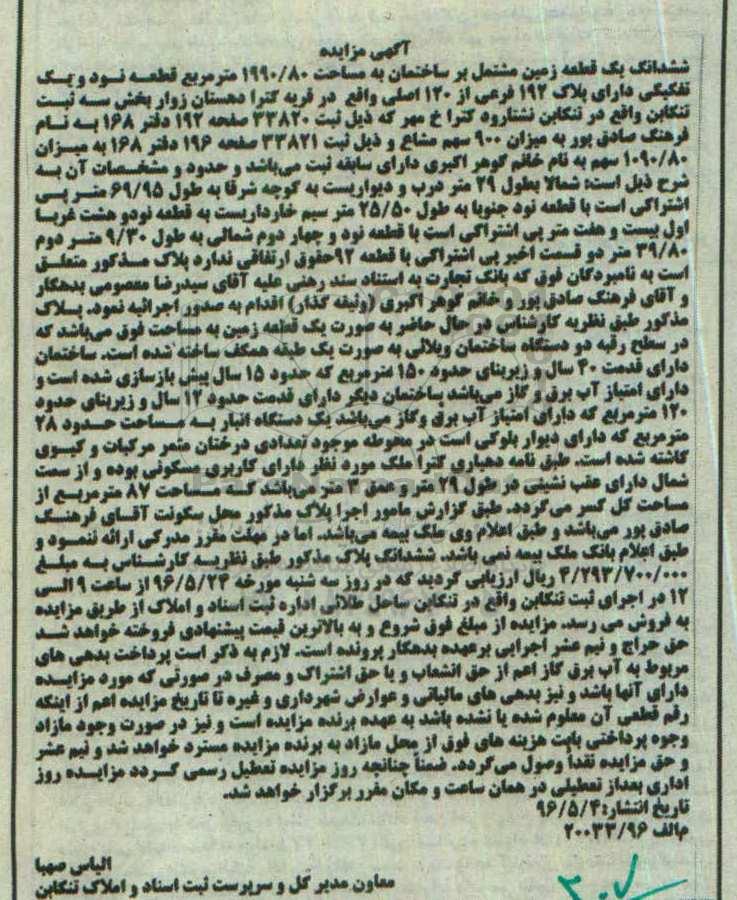 آگهی مزایده
ششدانگ یک قطعه زمین مشتمل بر ساختمان به مساحت ۱۹۹۰/۸۰ مترمربع قطعه نود و یک
تفکیکی دارای پلاک ۱۹۲ فرعی از ۱۲۰ اصلی واقع در قریه کترا دهستان زوار بخش سه ثبت
تنکابن واقع در تنکابن نشتارود کترا خ مهر که ذیل ثبت ۳۳۸۲۰ صفحه ۱۹۲ دفتر ۱۶۸ به نام
فرهنگ صادق پور به میزان ۹۰۰ سهم مشاع و ذیل ثبت ۳۳۸۲۱ صفحه ۱۹۶ دفتر ۱۶۸ به میزان
۱۰۹۰/۸۰ سهم به نام خانم گوهر اکبری دارای سابقه ثبت می‌باشد و حدود و مشخصات آن به
شرح ذیل است: شمالا بطول ۲۹ متر درب و دیواریست به کوچه شرقا به طول ۶۹/۹۵ متر پی
اشتراکی است با قطعه نود جنوبا به طول ۲۵/۵۰ متر سیم خارداریست به قطعه نودو هشت غربا
اول بیست و هفت متر پی اشتراکی است با قطعه نود و چهار دوم شمالی به طول ۹/۳۰ متر دوم
۳۹/۸۰ متر دو قسمت اخیر پی اشتراکی با قطعه ۹۲حقوق ارتفاقی ندارد پلاک مذکور متعلق
است به نامبردگان فوق که بانک تجارت به استناد سند رهنی علیه آقای سیدرضا معصومی بدهکار
و آقای فرهنگ صادق پور و خانم گوهر اکبری (وثیقه گذار) اقدام به صدور اجرائیه نمود. پلاک
مذکور طبق نظریه کارشناس در حال حاضر به صورت یک قطعه زمین به مساحت فوق می‌باشد که
در سطح رقبه دو دستگاه ساختمان ویلائی به صورت یک طبقه همکف ساخته شده است. ساختمان
دارای قدمت ۴۰ سال و زیربنای حدود ۱۵۰ مترمربع که حدود ۱۵ سال پیش بازسازی شده است و
دارای امتیاز آب برق و گاز می‌باشد ساختمان دیگر دارای قدمت حدود ۱۲ سال و زیربنای حدود
۱۲۰ مترمربع که دارای امتیاز آب برق وگاز می‌باشد یک دستگاه انبار به مساحت حدود ۲۸
مترمربع که دارای دیوار بلوکی است در محوطه موجود تعدادی درختان مثمر مرکبات و کیوی
کاشته شده است. طبق نامه دهیاری کترا ملک مورد نظر دارای کاربری مسکونی بوده و از سمت
شمال دارای عقب نشینی در طول ۲۹ متر و عمق ۳ متر می‌باشد که مساحت ۸۷ مترمربع از
مساحت کل کسر می‌گردد. طبق گزارش مامور اجرا پلاک مذکور محل سکونت آقای فرهنگ
صادق پور می‌باشد و طبق اعلام وی ملک بیمه می‌باشد. اما در مهلت مقرر مدرکی ارائه ننمود و
طبق اعلام بانک ملک بیمه نمی باشد. ششدانگ پلاک مذکور طبق نظریه کارشناس به مبلغ
۴/۲۹۳/۷۰۰/۰۰۰ ریال ارزیابی گردید که در روز سه شنبه مورخه ۹۶/۵/۲۴ از ساعت ۹ الی
۱۲ در اجرای ثبت تنکابن واقع در تنکابن ساحل طلائی اداره ثبت اسناد و املاک از طریق مزایده
به فروش می رسد. مزایده از مبلغ فوق شروع و به بالاترین قیمت پیشنهادی فروخته خواهد شد
حق حراج و نیم عشر اجرایی برعهده بدهکار پرونده است. لازم به ذکر است پرداخت بدهی های
مربوط به آب برق گاز اعم از حق انشعاب و یا حق اشتراک و مصرف در صورتی که مورد مزایده
دارای آنها باشد و نیز بدهی های مالیاتی و عوارض شهرداری و غیره تا تاریخ مزایده اعم از اینکه
رقم قطعی آن معلوم شده یا نشده باشد به عهده برنده مزایده است و نیز در صورت وجود مازاد
وجوه پرداختی بابت هزینه های فوق از محل مازاد به برنده مزایده مسترد خواهد شد و نیم عشر
و حق مزایده نقداً وصول می‌گردد. ضمناً چنانچه روز مزایده تعطیل رسمی گردد مزایده روز
اداری بعداز تعطیلی در همان ساعت و مکان مقرر برگزار خواهد شد.
تاریخ انتشار: ۹۶/۵/۴
م‌الف ۲۰۰۳۳/۹۶
الیاس صهبا
معاون مدیر کل و سرپرست ثبت اسناد و املاک تنکابن